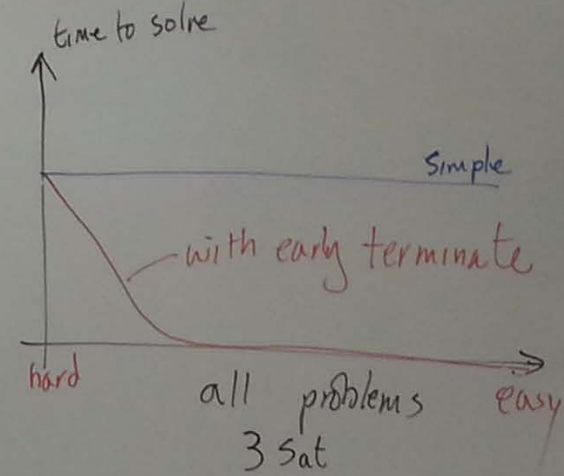 time to solve
simple
with early terminate
hard
easy
all problems
3 Sat